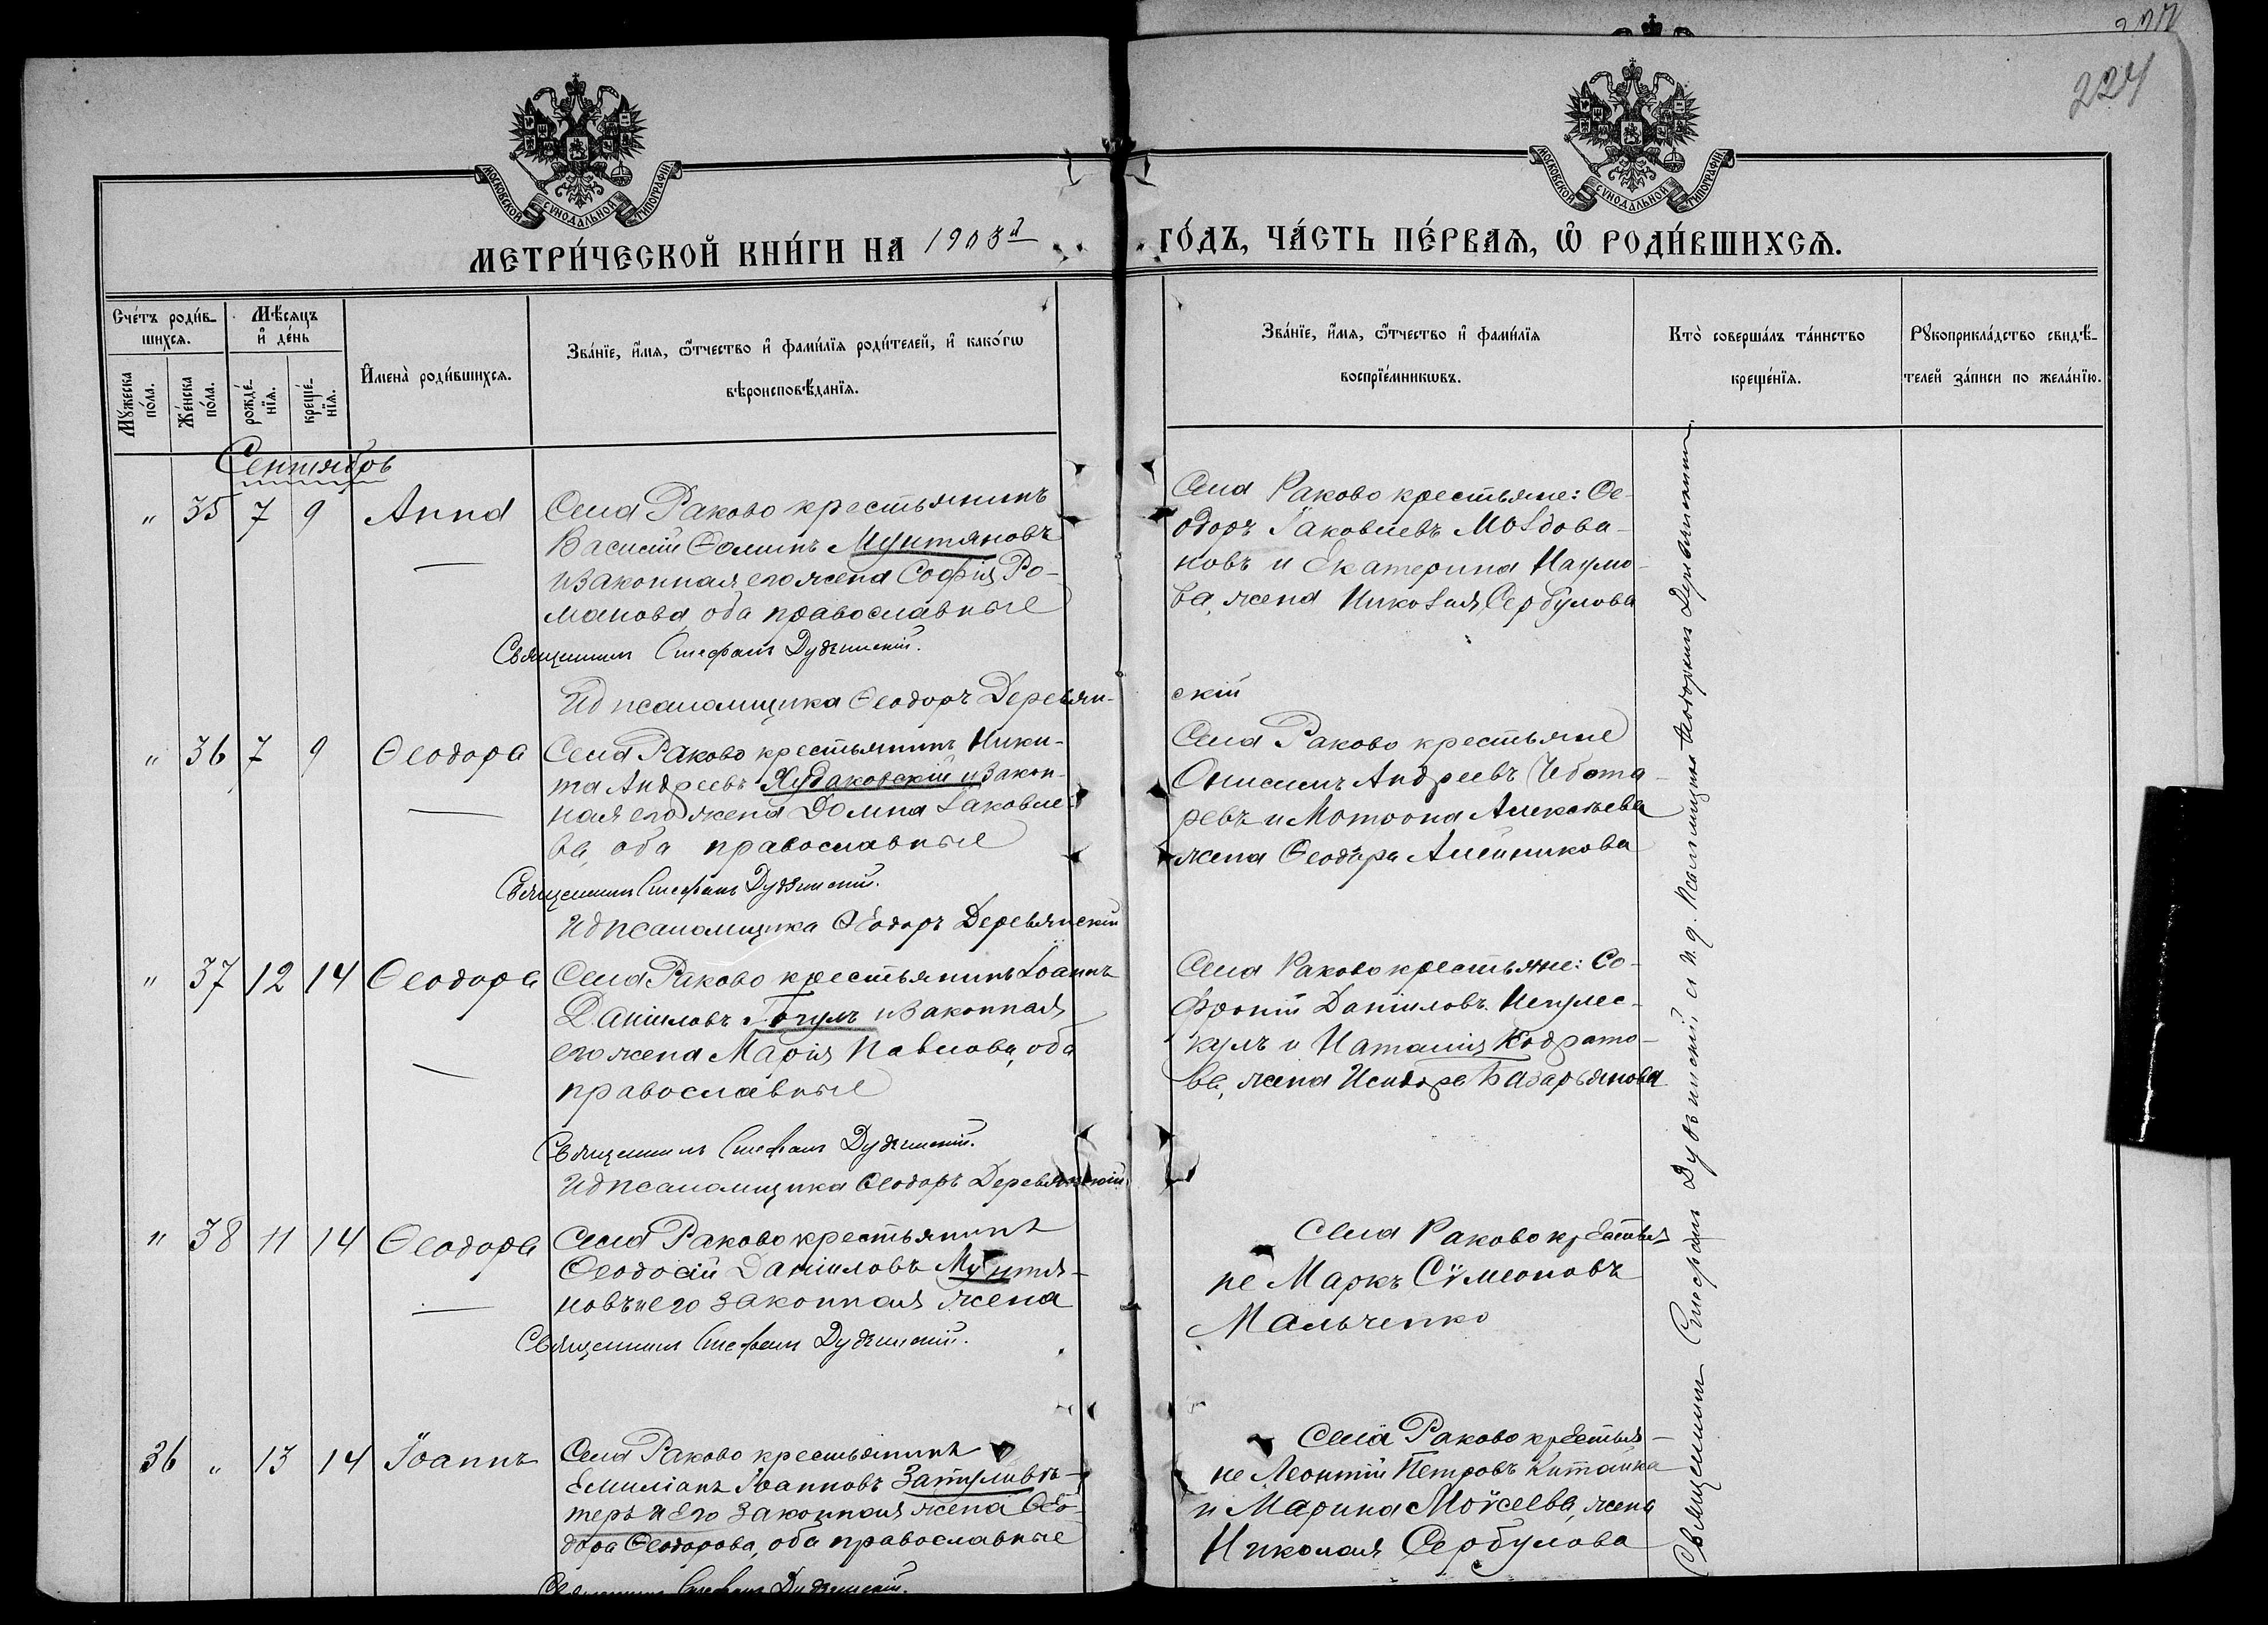 224
МОСКОВСКОЙ СУНОДАЛЬНОЙ ТИПОГРАФІИ
МОСКОВСКОЙ СУНОДАЛЬНОЙ ТИПОГРАФІИ
МЕТРИ́ЧЕСКОЙ КНИ́ГИ НА 1903й
ГО́ДЪ, ЧА́СТЬ ПЕ́РВАѦ, Ѽ РОДИ́ВШИХСѦ.
Сче́тъ роди́в-
шихсѧ.
Мѣ́сѧцъ
и҆ де́нь
Мꙋ́жеска по́ла.
Же́нска по́ла.
рожде́-нїѧ.
креще́-нїѧ.
И҆мена̀ роди́вшихсѧ.
Зва́нїе, и҆́мѧ, ѻ҆́тчество и҆ фами́лїѧ роди́телей, и҆ како́гѡ
вѣроисповѣ́данїѧ.
Зва́нїе, и҆́мѧ, ѻ҆́тчество и҆ фами́лїѧ
воспрїе́мникѡвъ.
Кто̀ соверша́лъ та́инство
креще́нїѧ.
Рꙋкоприкла́дство свидѣ́-
телей за́писи по жела́нїю.
Сентябрь
" 35 7 9 Анна
Села Раково крестьянинъ
Василій Ѳоминъ Мунтяновъ
и законная его жена Софія Ро-
манова, оба православные
Священникъ Стефанъ Дудзинскій.
Ид псаломщика Ѳеодоръ Деревян-
скій
Села Раково крестьяне: Ѳе-
одоръ Іаковлевъ Молдова-
новъ и Екатерина Наумо-
ва, жена Николая Сербулова
" 36 7 9 Ѳеодора
Села Раково крестьянинъ Ники-
та Андреевъ Худаковскій и закон-
ная его жена Домна Іаковле-
ва, оба православные
Священникъ Стефанъ Дудзинскій.
Ид псаломщика Ѳеодоръ Деревянскій
Села Раково крестьяне
Онисимъ Андреевъ Чебота-
ревъ и Матрона Алексѣева
жена Ѳеодора Алейникова
" 37 12 14 Ѳеодора
Села Раково крестьянинъ Іоаннъ
Даніиловъ Гогулъ и законная
его жена Марія Павлова, оба
православные
Священникъ Стефанъ Дудзинскій.
Ид псаломщика Ѳеодоръ Деревянскій
Села Раково крестьяне: Со-
фроній Даніиловъ
и Наталія Кодрато-
ва, жена Исидора Базарьянова
" 38 11 14 Ѳеодора
Села Раково крестьянинъ
Ѳеодосій Даніиловъ Мунтя-
новъ и его законная жена
Священникъ Стефанъ Дудзинскій.
Села Раково крестья
не Маркъ Сѵмеоновъ
Мальченко
36 " 13 14 Іоаннъ
Села Раково крестьянинъ
Емиліанъ Іоанновъ Затуливѣ-
теръ и его законная жена Ѳео-
дора Ѳеодорова, оба православные
Священникъ Стефанъ Дудзинскій.
Села Раково крестья-
не Леонтій Петровъ Китайка
и Марина Моѵсеева, жена
Николая Сербулова
Священникъ Стефанъ Дудзинскій и и.д. псаломщика Ѳеодоръ Деревянскій